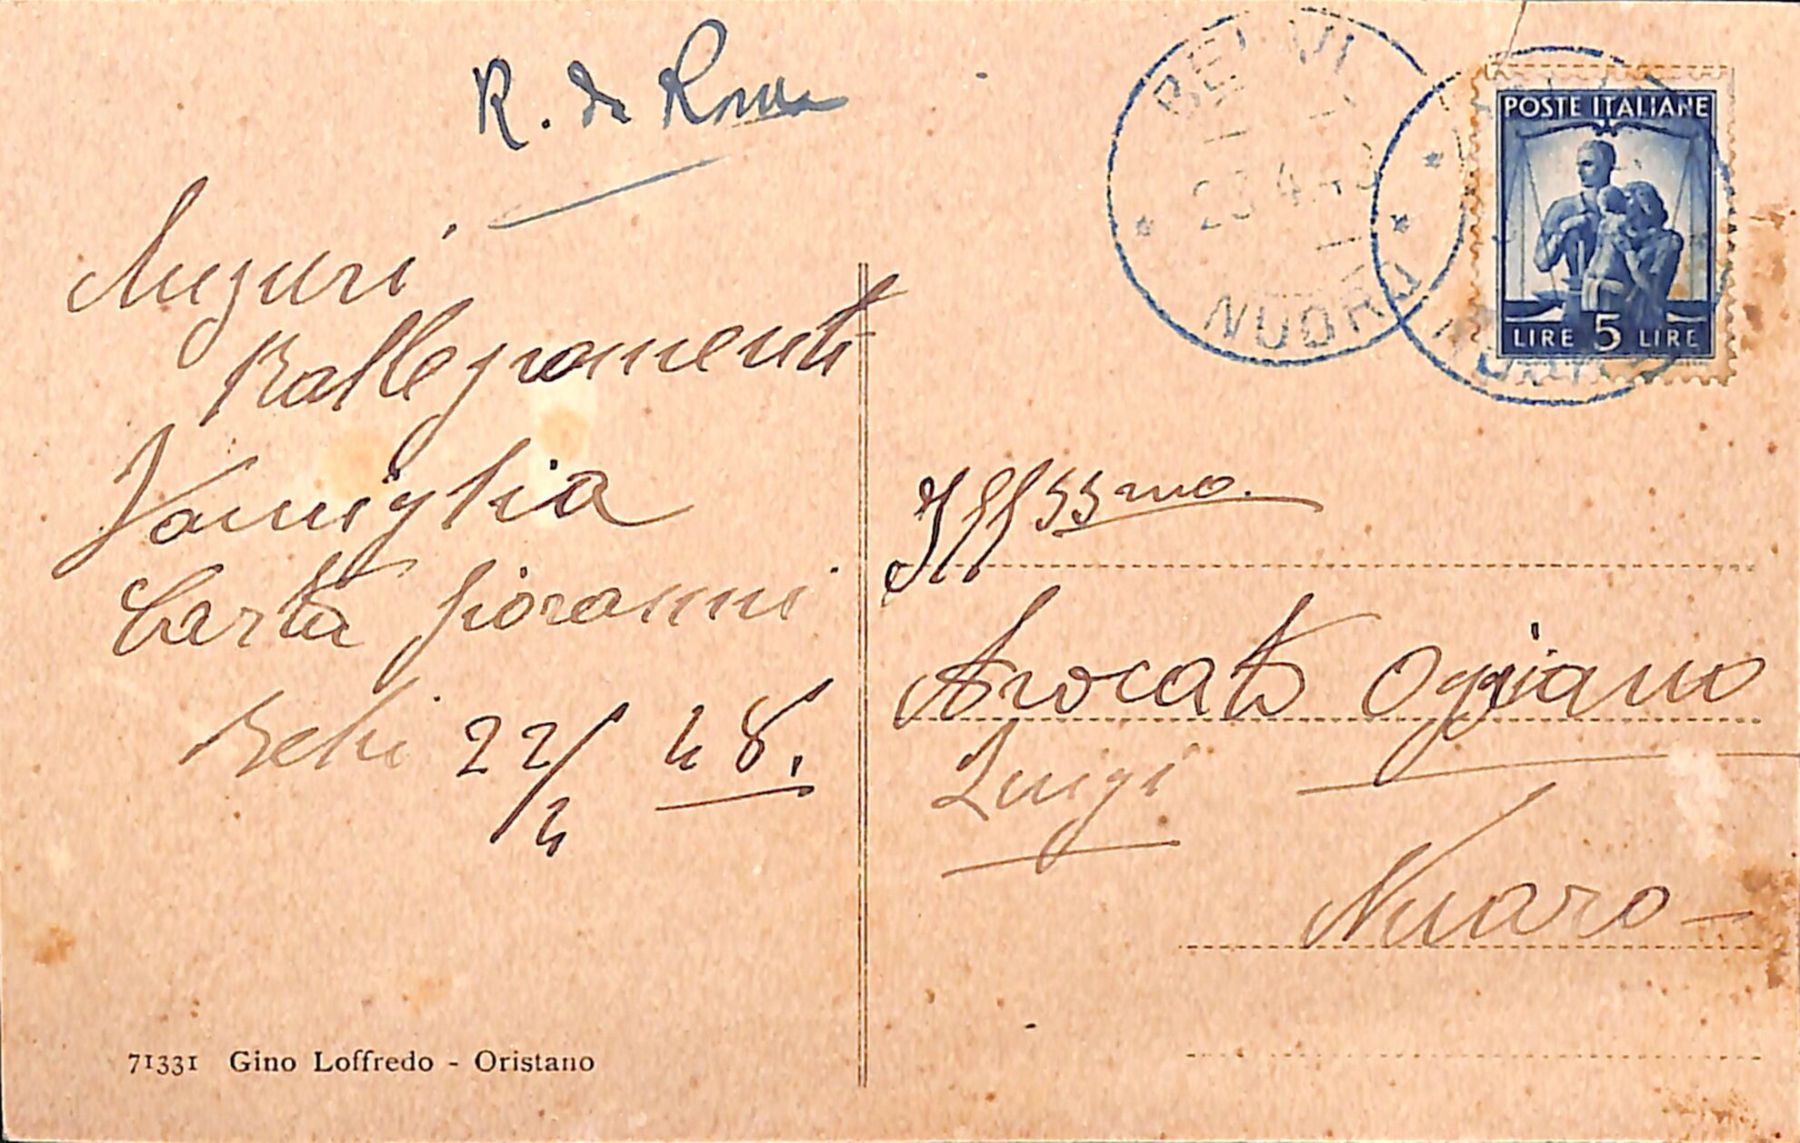 R. da Roma
Auguri
Rallegramenti
Famiglia
Carta Giovanni
Belvi 22/4 48.
71331 Gino Loffredo - Oristano
BELVI
23.4.48
NUORO
POSTE ITALIANE
LIRE 5 LIRE
NUORO
Ill/ssmo.
Avocato Oggiano
Luigi
Nuoro -